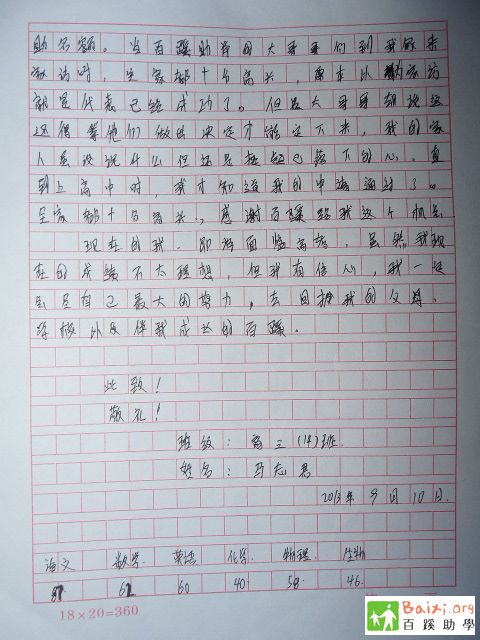 助名额。当百蹊助学的大哥哥们到我家来
家访时,全家都十分高兴,原本以为家访
就是代表已经成功了。但是大哥哥却说这
还得等他们做出决定才能定下来,我的家
人虽没说什么但还是担忧已落下的心。直
到上高中时,我才知道我的申请通过了。
全家都十分高兴,感谢百蹊给我这个机会
现在的我,即将面临高考,虽然我现
在的成绩不大理想,但我有信心,我一定
会尽自己最大的努力,去回报我的父母、
学校以及伴我成长的百蹊。
此致!
敬礼!
班级:高三(14)班
姓名:马志
2013年9月10日
语文 数学 英语 化学 物理 生物
81 62 60 40 58 46
18×20=360
Baixi.org
百蹊助學